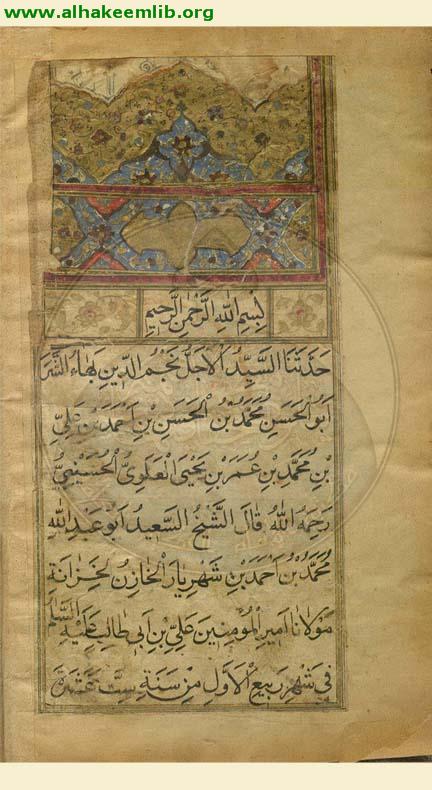 www.alhakeemlib.org
بِسْمِ اللهِ الرَّحْمٰنِ الرَّحِيمِ
حَدَّثَنَا السَّيِّدُ الْاَجَلُّ نَجْمُ الدِّينِ بَهَاءُ الشَّرَ
اَبُو الْحَسَنِ مُحَمَّدُ بْنُ الْحَسَنِ بْنِ اَحْمَدَ بْنِ عَلِيِّ
بْنِ مُحَمَّدِ بْنِ عُمَرَ بْنِ يَحْيَى الْعَلَوِيُّ الْحُسَيْنِيُّ
رَحِمَهُ اللهُ قَالَ الشَّيْخُ السَّعِيدُ اَبُو عَبْدِ اللهِ
مُحَمَّدُ بْنُ اَحْمَدَ بْنِ شَهْرِيَارَ الْخَازِنُ لِخِزَانَةِ
مَوْلَانَا اَمِيرِ الْمُؤْمِنِينَ عَلِيِّ بْنِ اَبِي طَالِبٍ عَلَيْهِ السَّلَامُ
فِي شَهْرِ رَبِيعِ الْاَوَّلِ مِنْ سَنَةِ سِتَّ عَشَرَةَ